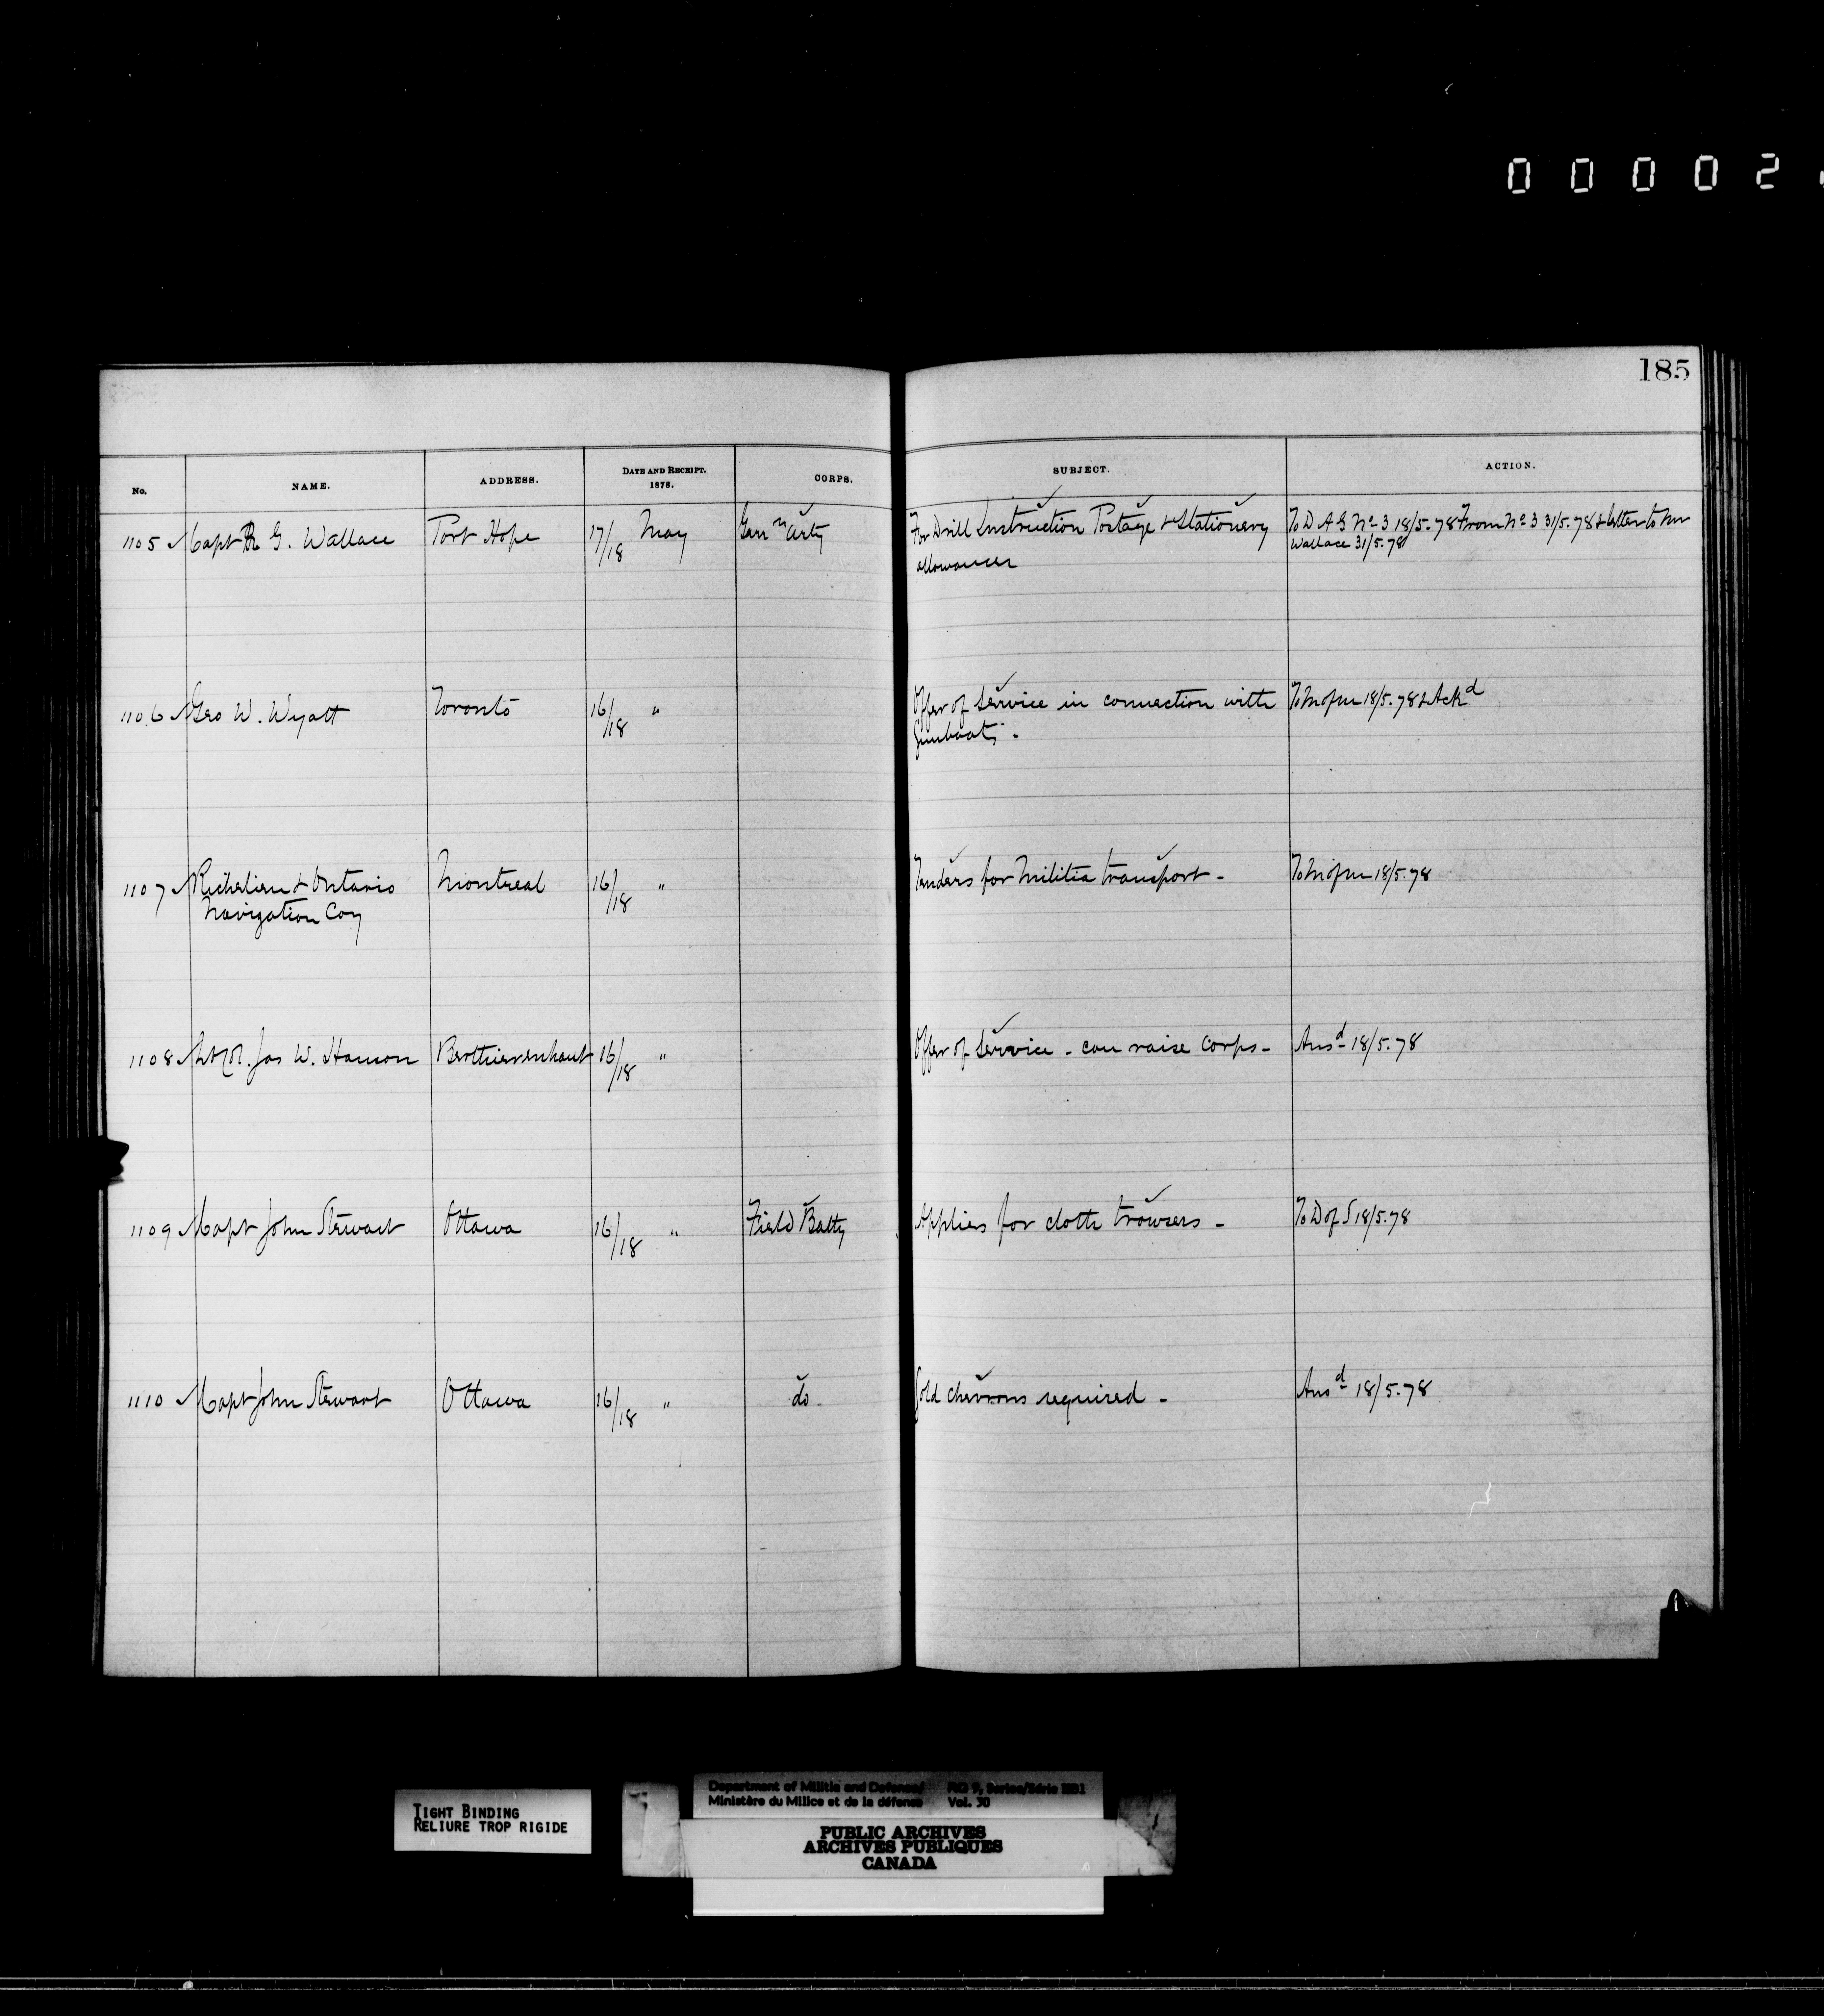 00002
185
No. NAME. ADDRESS. DATE AND RECEIPT. 1878. CORPS. SUBJECT. ACTION.
1105 Capt R G. Wallace Port Hope 17/18 May Garrn Arty For Drill Instruction Postage & Stationery To D A G No 3 18/5.78 From No 3 31/5.78 & letter to
allowances Wallace 31/5.78
1106 Geo W. Wyatt Toronto 16/18 " Offer of Service in connection with To M of M 18/5.78 & Ackd
Gunboats -
1107 Richelieu & Ontario Montreal 16/18 " Tenders for Militia transport - To M of M 18/5.78
Navigation Coy
1108 Lt Col. Jas W. Hanson Berthierenhaut 16/18 " Offer of Service - can raise Corps - Ansd 18/5.78
1109 Capt John Stewart Ottawa 16/18 " Field Batty Applies for cloth trowsers - To D of S 18/5.78
1110 Capt John Stewart Ottawa 16/18 " do. Gold chevrons required - Ansd 18/5.78
TIGHT BINDING
RELIURE TROP RIGIDE
Department of Militia and Defence/ RG 9, Series/Série IIB1
Ministère du Milice et de la défense Vol. 30
PUBLIC ARCHIVES
ARCHIVES PUBLIQUES
CANADA